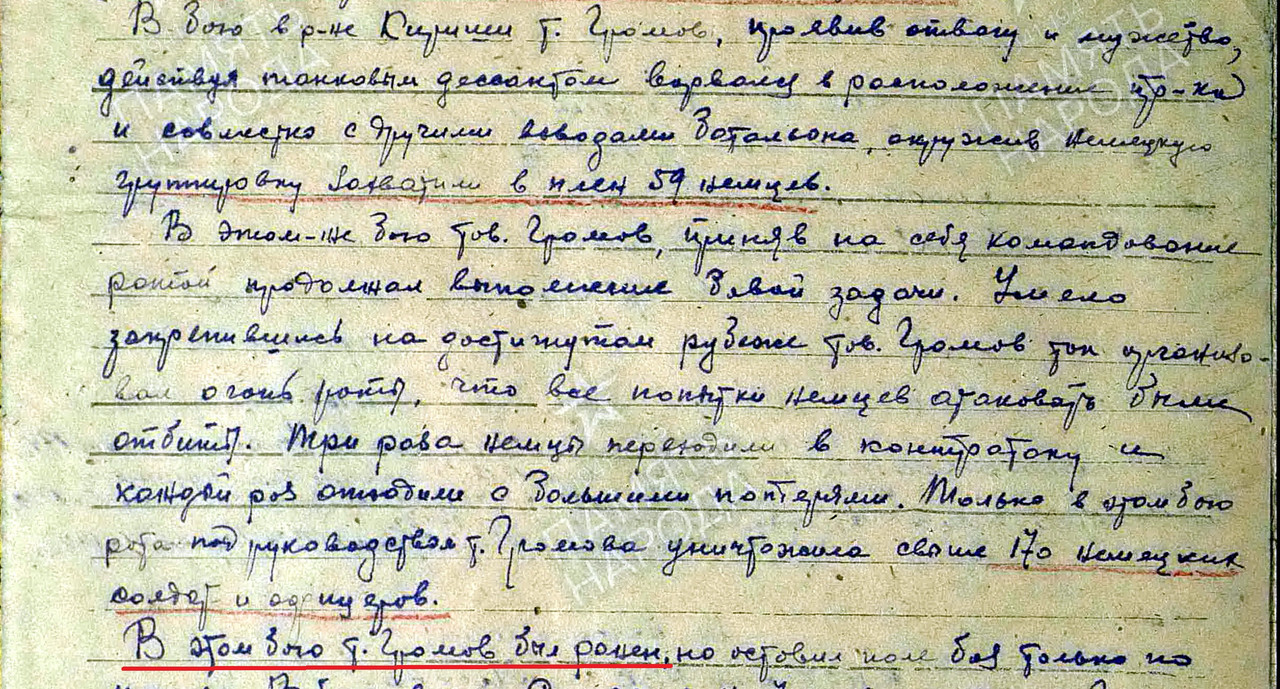 В бою в р-не Кириши т. Громов, проявив отвагу и мужество,
действуя танковым дессантом ворвался в расположение пр-ка
и совместно с другими взводами батальона, окружив немецкую
группировку захватили в плен 59 немцев.
В этом-же бою тов. Громов, приняв на себя командование
ротой продолжал выполнение боевой задачи. Умело
закрепившись на достигнутом рубеже тов. Громов так организо-
вал огонь роты, что все попытки немцев атаковать были
отбиты. Три раза немцы переходили в контратаку и
каждый раз отходили с большими потерями. Только в этом бою
рота под руководством т. Громова уничтожила свыше 170 немецких
солдат и офицеров.
В этом бою т. Громов был ранен, но оставил поле боя только по
ПАМЯТЬ
НАРОДА